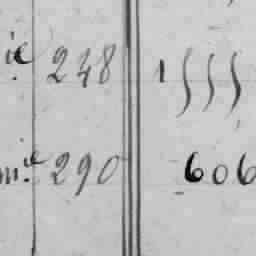 ie 248 1555
m.ie 290 606